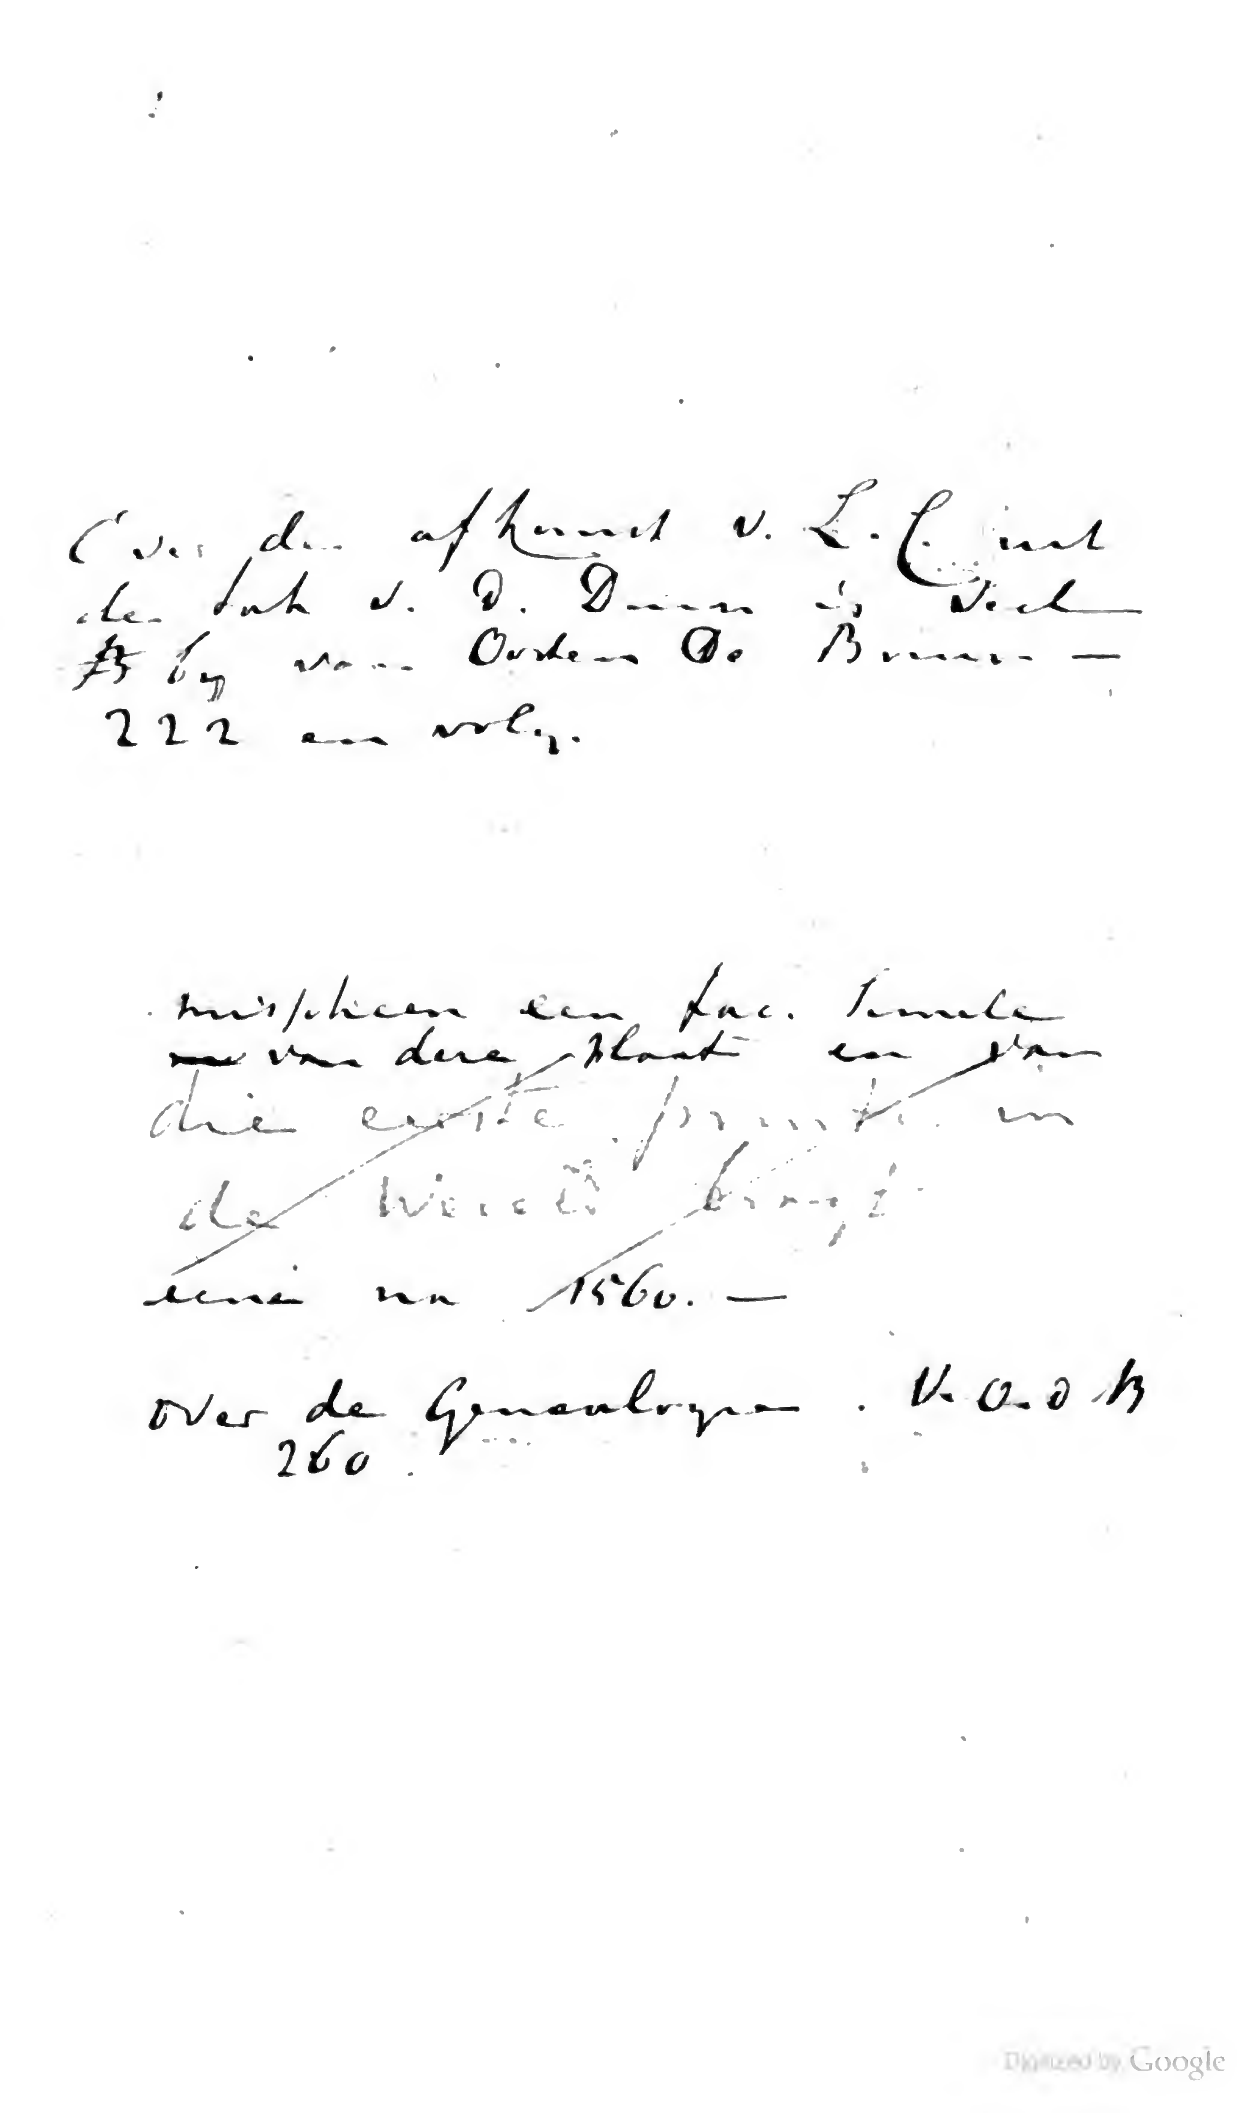 Over de afkomst v. L. C. uit
den tak v. d. Duin is veel
bij van Oosten De Bruin —
222 en volg.
misschien een fac. Simile
van deze plaat en van
die eerste print in
de Wereld brengt
eene na 1560. —
over de Genealogie . V. O. d B
260.
Digitized by Google